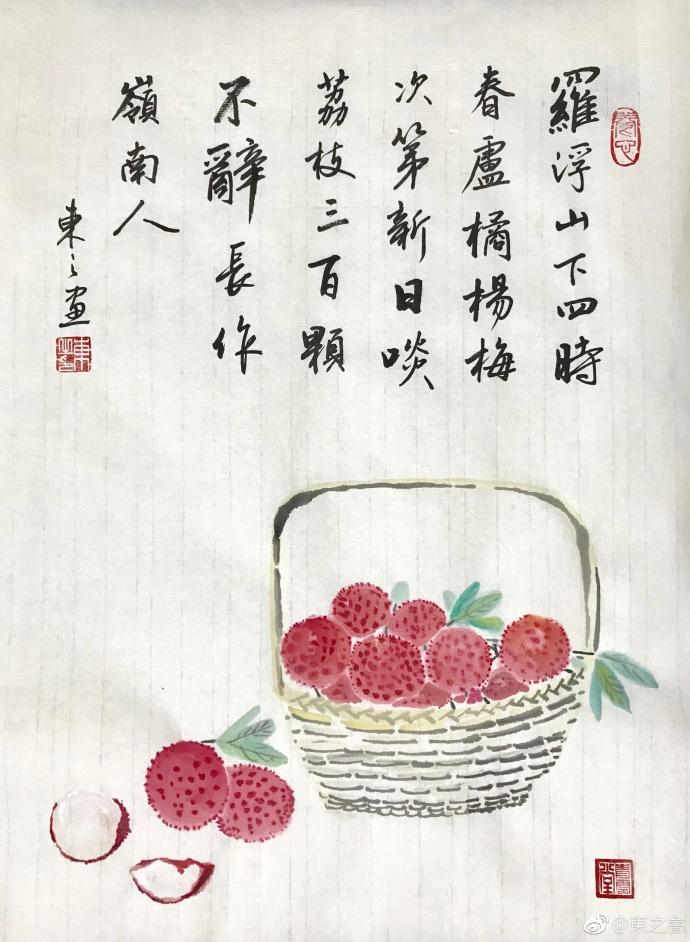 羅浮山下四時
春盧橘楊梅
次第新日啖
荔枝三百顆
不辭長作
嶺南人
東之画
@東之會